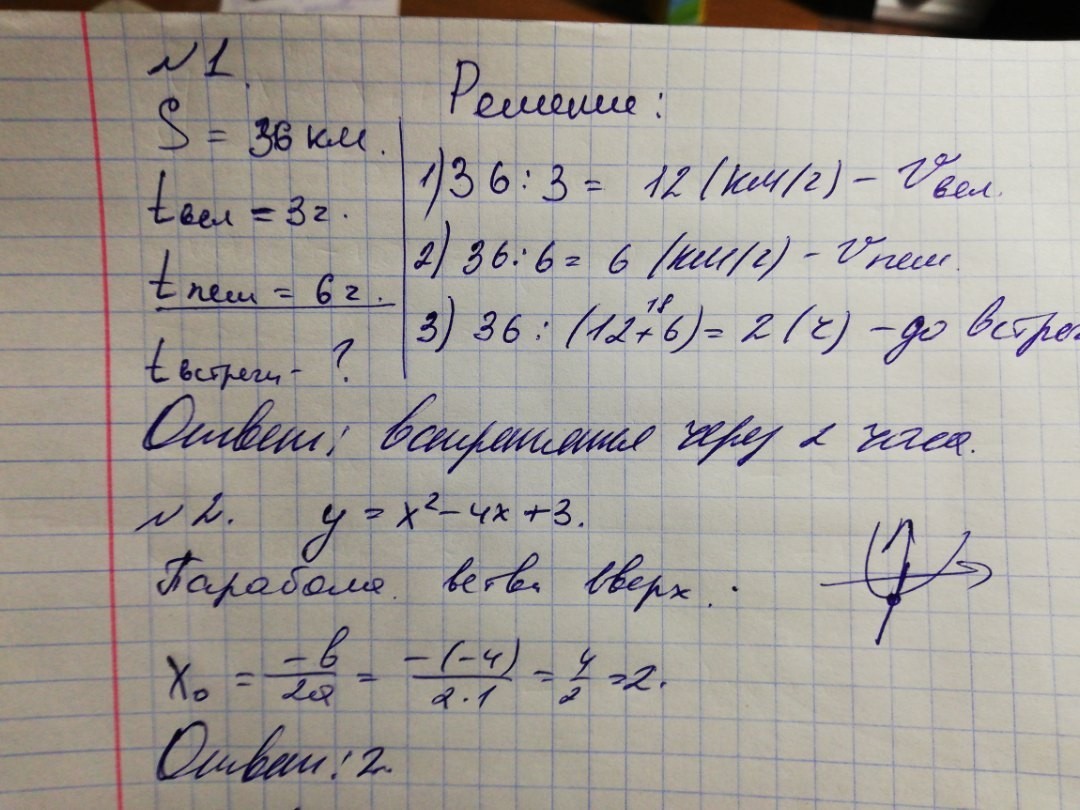 №1.
S = 36 км.
t вел = 3 ч.
t пеш = 6 ч.
t встречи - ?
Решение:
1) 36 : 3 = 12 (км/ч) - Vвел.
2) 36 : 6 = 6 (км/ч) - Vпеш.
18
3) 36 : (12 + 6) = 2 (ч) - до встреч
Ответ: встретятся через 2 часа.
№2. y = x² - 4x + 3.
Парабола. ветви вверх.
x₀ = -в/2a = -(-4)/2·1 = 4/2 = 2.
Ответ: 2.